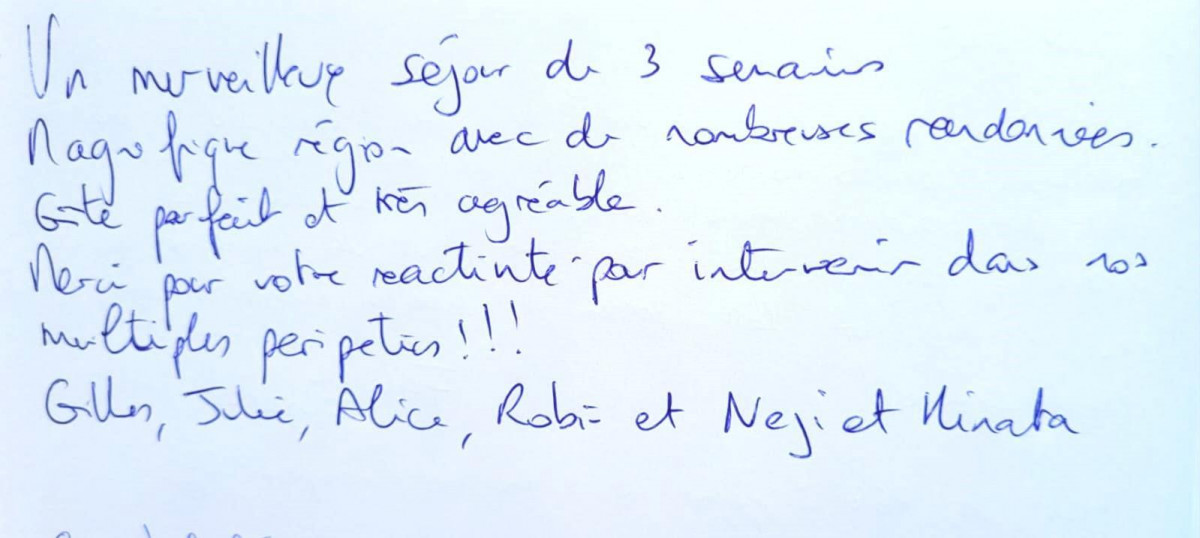 Un merveilleux séjour de 3 semaines
Magnifique région avec de nombreuses randonnées.
Gîte parfait et très agréable.
Merci pour votre réactivité pour intervenir dans nos
multiples peripeties !!!
Gilles, Julie, Alice, Robin et Neji et Hinata